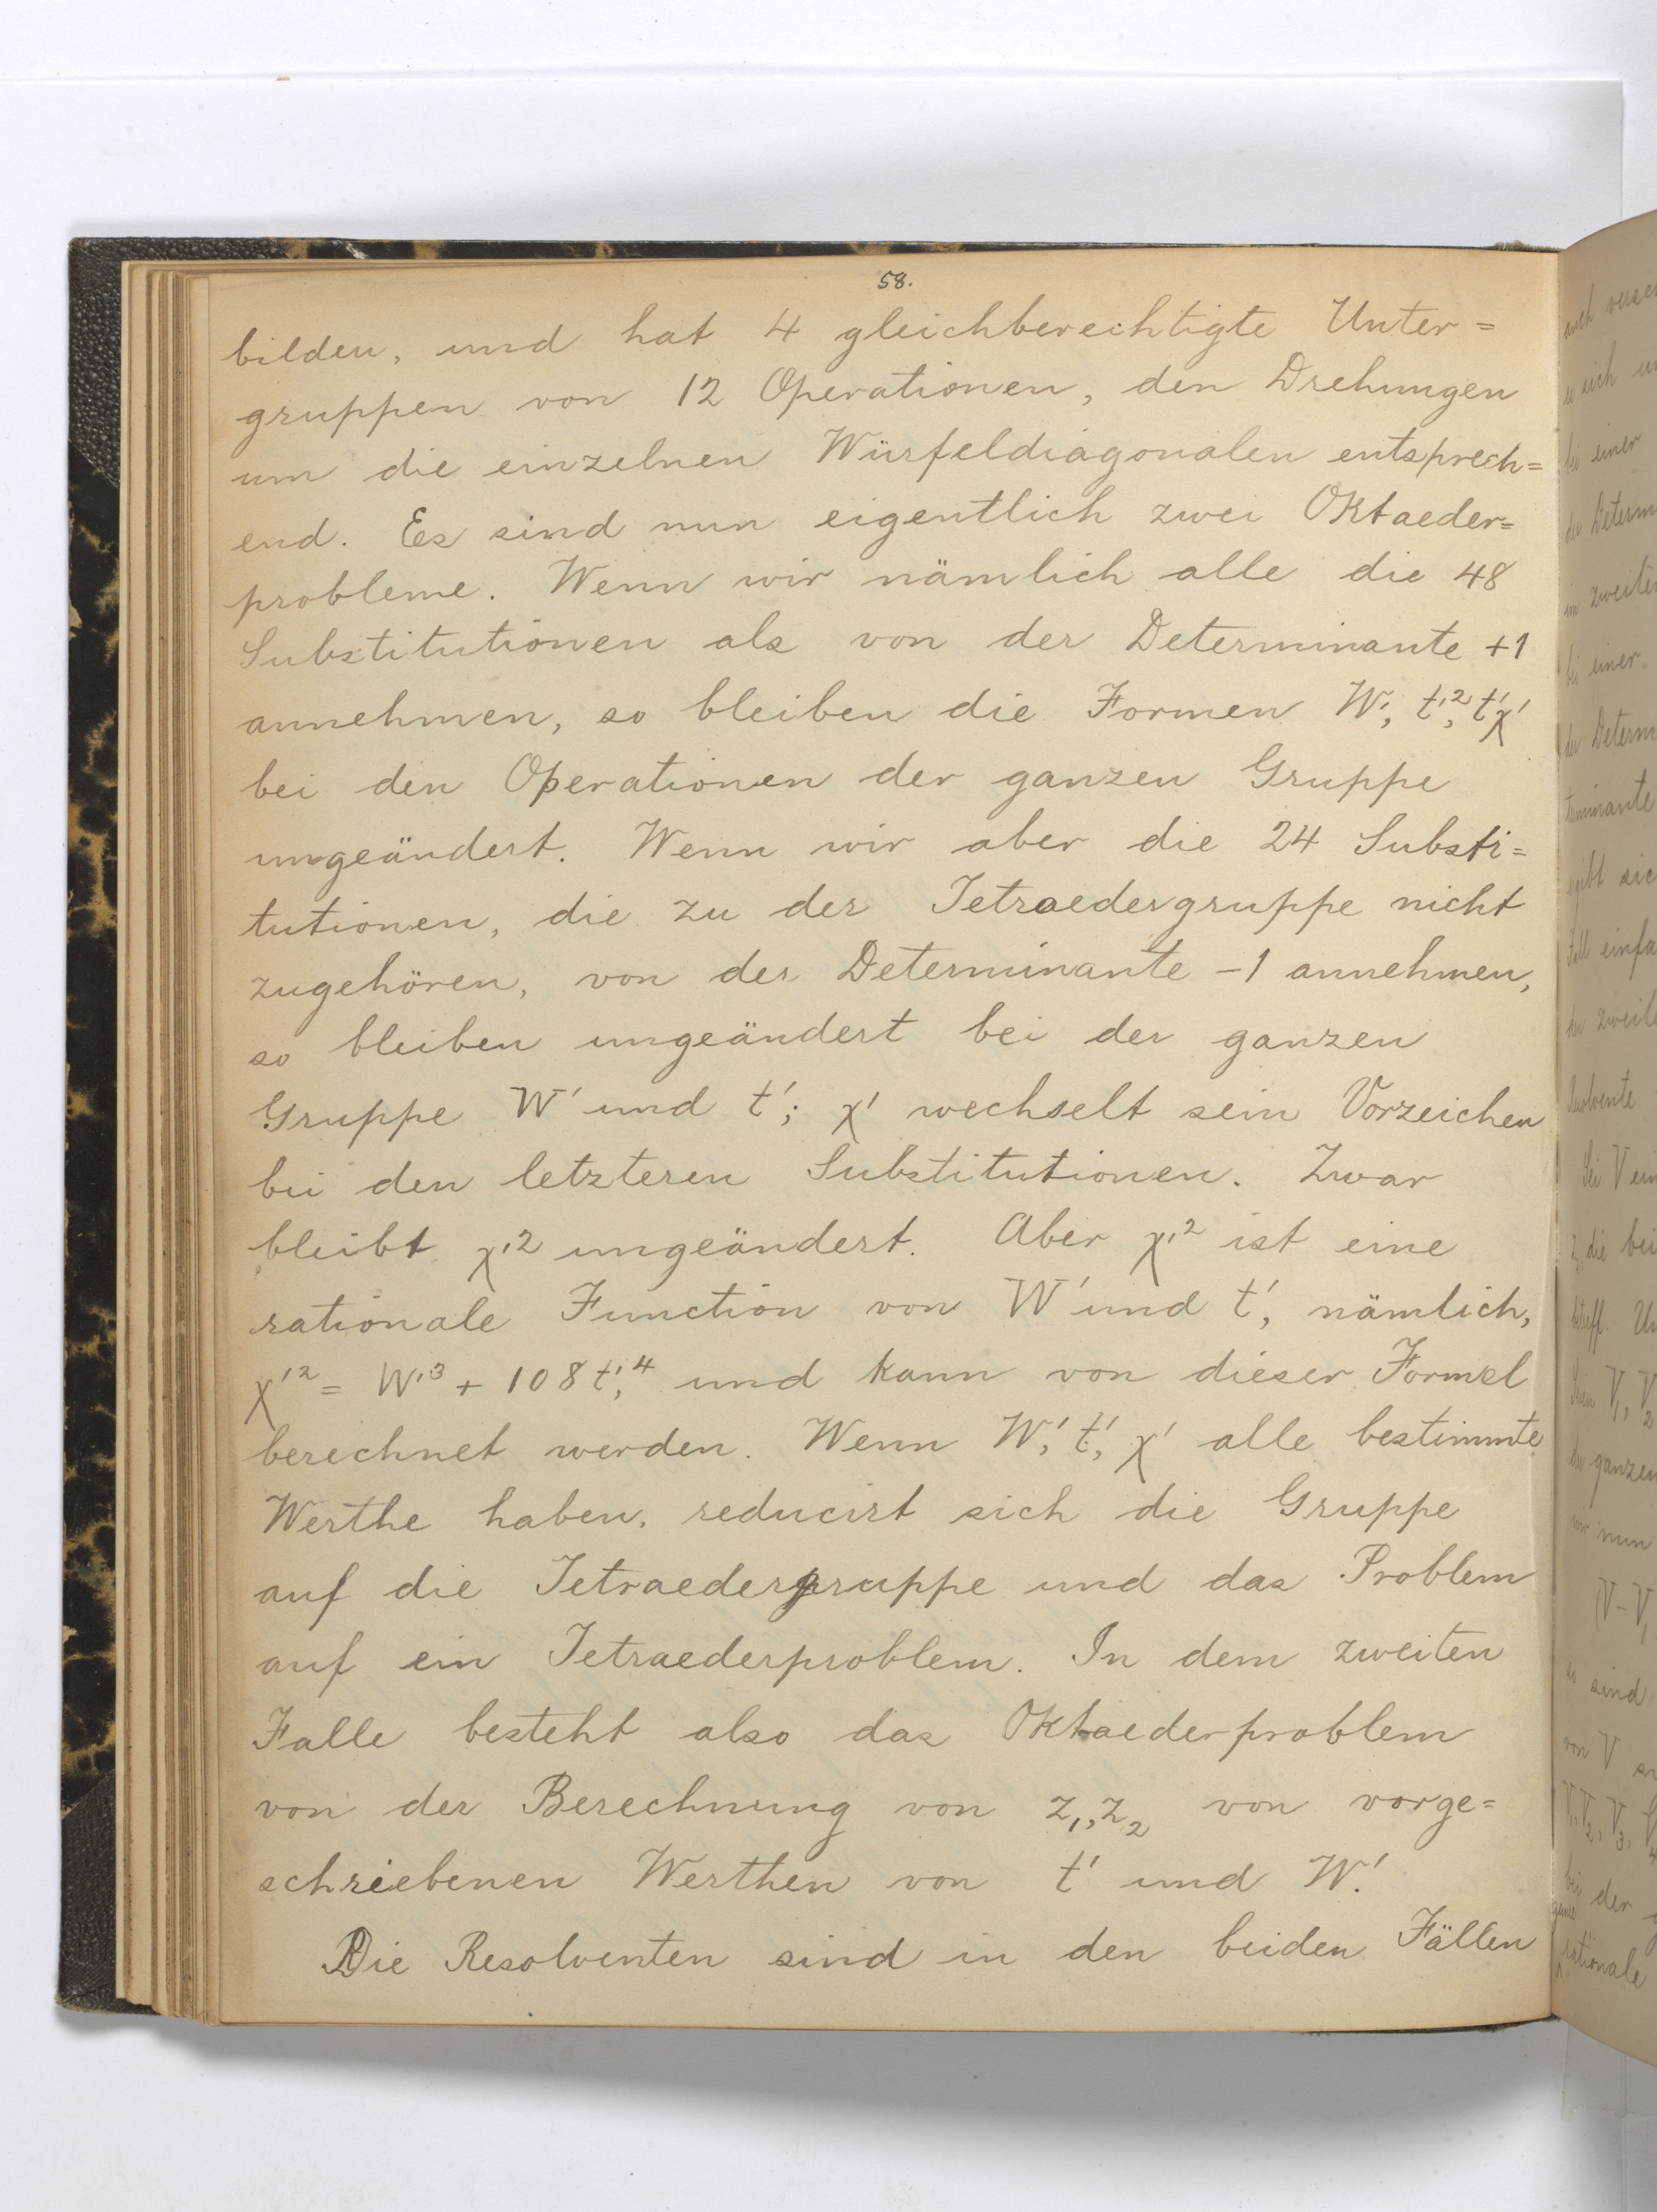 58.
bilden, und hat 4 gleichberechtigte Unter=
gruppen von 12 Operationen, den Drehungen
um die einzelnen Würfeldiagonalen entsprech=
end. Es sind nun eigentlich zwei Oktaeder=
probleme. Wenn wir nämlich alle die 48
Substitutionen als von der Determinante +1
annehmen, so bleiben die Formen W', t'², t'χ'
bei den Operationen der ganzen Gruppe
ungeändert. Wenn wir aber die 24 Substi=
tutionen, die zu der Tetraedergruppe nicht
zugehören, von der Determinante -1 annehmen,
so bleiben ungeändert bei der ganzen
Gruppe W' und t'; χ' wechselt sein Vorzeichen
bei den letzteren Substitutionen. Zwar
bleibt χ'² ungeändert. Aber χ'² ist eine
rationale Function von W' und t', nämlich,
χ'² = W'³ + 108t'⁴, und kann von dieser Formel
berechnet werden. Wenn W', t', χ' alle bestimmte
Werthe haben, reducirt sich die Gruppe
auf die Tetraedergruppe und das Problem
auf ein Tetraederproblem. In dem zweiten
Falle besteht also das Oktaederproblem
von der Berechnung von z₁, z₂ von vorge=
schriebenen Werthen von t' und W'.
Die Resolventen sind in den beiden Fällen